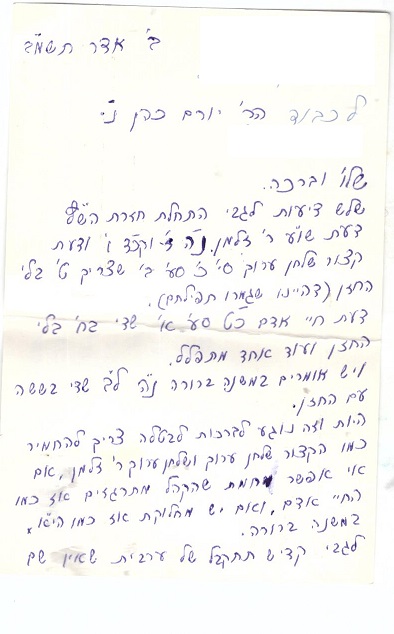 ב' אדר תשמ"ב
לכבוד הר' יורם כהן נ"י
שלו' וברכה.
שלש דיעות לגבי התחלת חזרת הש"ץ
דעת שו"ע ר' זלמן. נ"ה ז' וקכ"ד ו' ודעת
קצור שלחן ערוך סי' כ' סע' ב' שצריך ט' בלי
החזן (דהיינו שגמרו תפילתם).
דעת חיי אדם כ"ט סע' א' שדי בח' בלי
החזן ועוד אחד מתפלל.
ויש אומרים במשנה ברורה נ"ה ל"ב שדי בששה
עם החזן.
היות וזה נוגע לברכות לבטלה צריך להחמיר
כמו הקצור שלחן ערוך ושלחן ערוך ר' זלמן, אם
אי אפשר מחמת שהקהל מתרגזים אז כמו
החיי אדם, ואם יש מחלוקת אז כמו הי"א
במשנה ברורה.
לגבי קדיש תתקבל של ערבית שאין שם